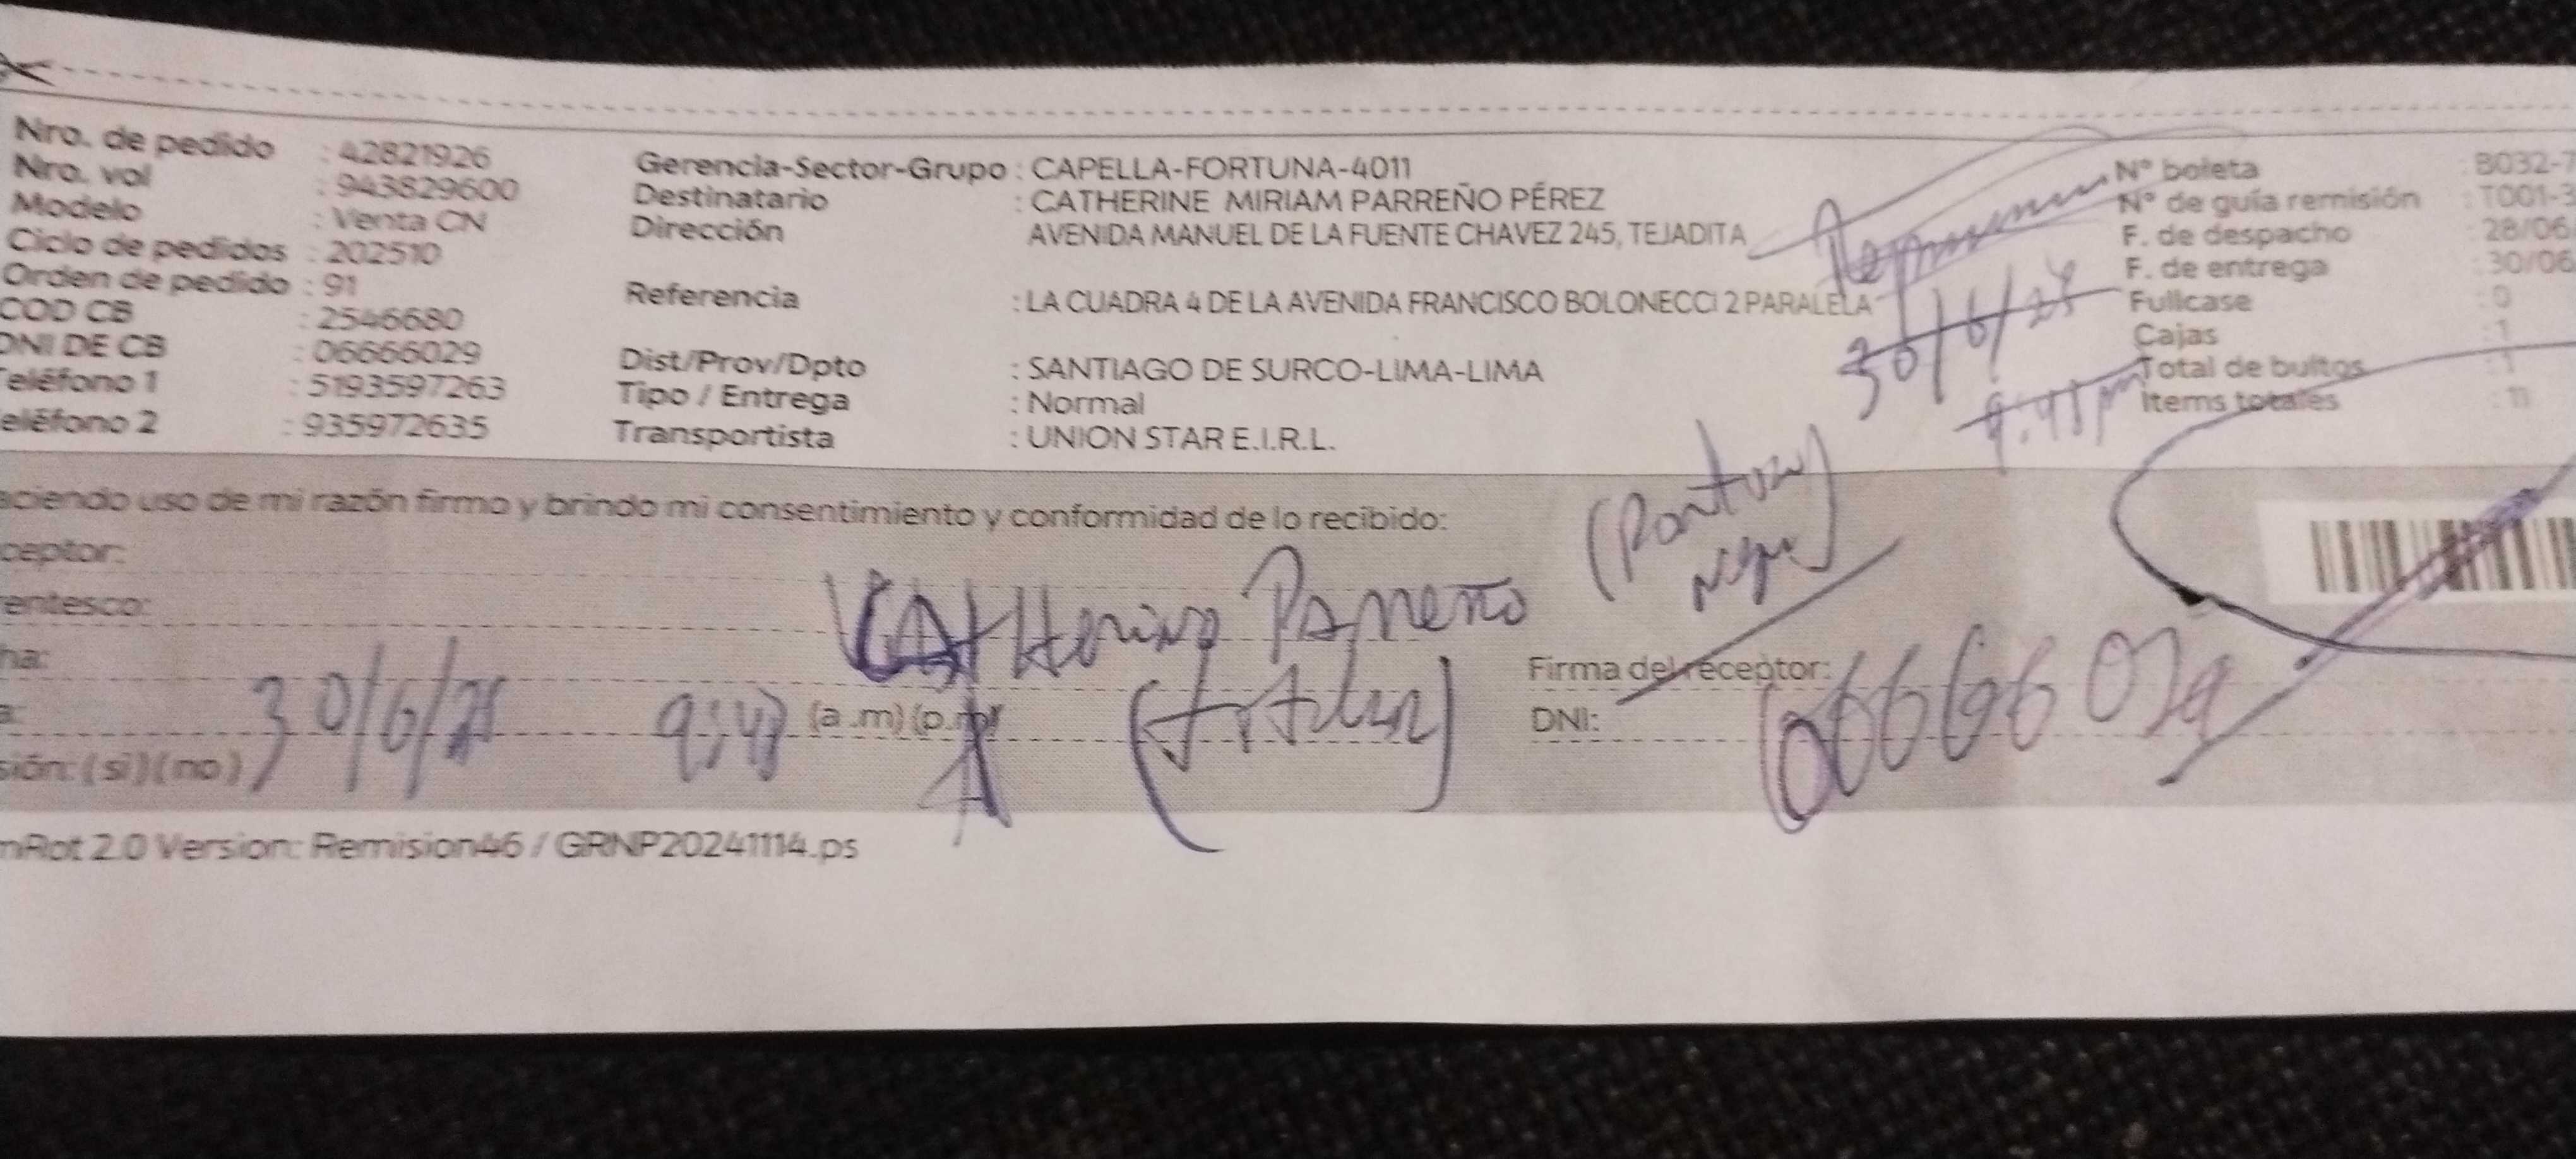 Nro. de pedido : 42821926
Nro. vol : 943829600
Modelo : Venta CN
Ciclo de pedidos : 202510
Orden de pedido : 91
COD CB : 2546680
DNI DE CB : 06666029
Teléfono 1 : 5193597263
eléfono 2 : 935972635
Gerencia-Sector-Grupo : CAPELLA-FORTUNA-4011
Destinatario : CATHERINE MIRIAM PARREÑO PÉREZ
Dirección AVENIDA MANUEL DE LA FUENTE CHAVEZ 245, TEJADITA
Referencia : LA CUADRA 4 DE LA AVENIDA FRANCISCO BOLONECCI 2 PARALELA
Dist/Prov/Dpto : SANTIAGO DE SURCO-LIMA-LIMA
Tipo / Entrega : Normal
Transportista : UNION STAR E.I.R.L.
30/6/25
9:48 pm
N° boleta : B032-7
N° de guía remisión : T001-3
F. de despacho : 28/06
F. de entrega : 30/06
Fullcase : 0
Cajas : 1
Total de bultos : 1
Items totales : 11
aciendo uso de mi razón firmo y brindo mi consentimiento y conformidad de lo recibido:
ceptor:
entesco:
ha:
a: (a .m) (p.m)
sión: (si) (no)
30/6/25
9:48
CATHerine Parreño
(titular)
(Portón
negro)
Firma del receptor:
DNI: 06666029
mRot 2.0 Version: Remision46 / GRNP20241114.ps